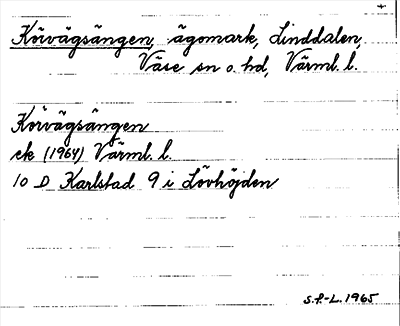 Körvägsängen, ägomark, Linddalen,
Väse sn o. hd, Värml. l.
Körvägsängen
ek (1964) Värml. l.
10 D Karlstad 9 i Lövhöjden
S.P.-L. 1965